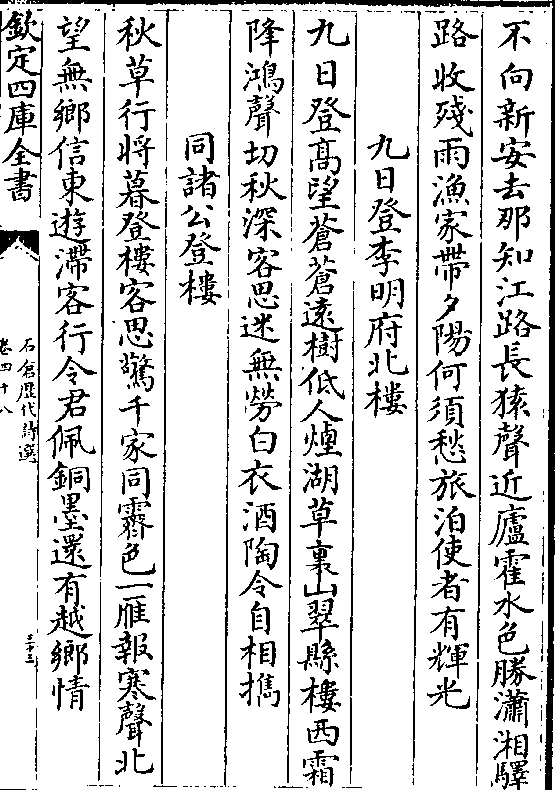 不向新安去那知江路長猿聲近廬霍水色勝瀟湘驛
路收殘雨漁家帶夕陽何須愁旅泊使者有輝光
九日登李明府北樓
九日登髙望蒼蒼遠樹低人煙湖草裏山翠縣樓西霜
降鴻聲切秋深客思迷無勞白衣酒陶令自相擕
同諸公登樓
秋草行將暮登樓客思驚千家同霽色一雁報寒聲北
望無鄉信東遊滯客行今君佩銅墨還有越鄉情
欽定四庫全書
石倉歴代詩選
卷四十八
三十三